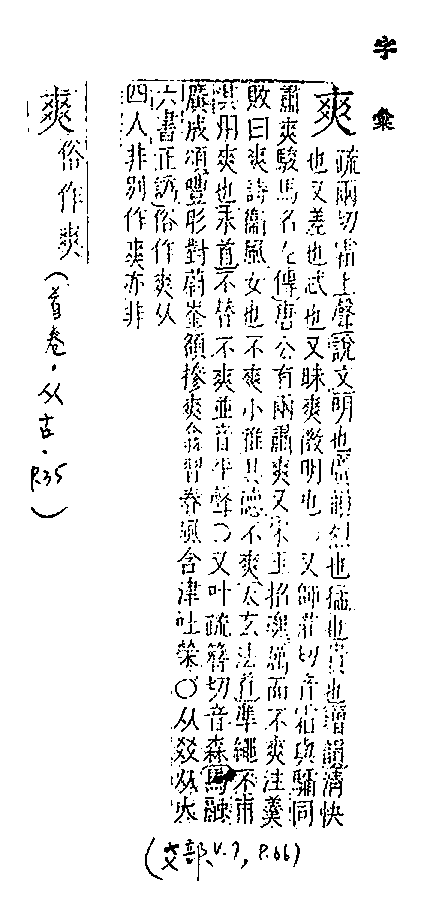 字彙
爽 疏兩切霜上聲說文明也廣韻烈也猛也貴也增韻清快
也又差也忒也又昧爽微明也○又師莊切音霜與驦同
肅爽駿馬名左傳唐公有兩肅爽又宋玉招魂厲而不爽注羹
敗曰爽詩衞風女也不爽小雅其德不爽太玄法在準繩不甫
其用爽也釆首不替不爽並音平聲○又叶疏簪切音森馬融
廣成頌豐肜對蔚崟頟摻爽翕習春風含津吐榮○从㸚从大
六書正譌俗作爽从
四人非別作爽亦非
(爻部、V.7, P.66)
爽俗作爽
(首卷·从古·P.35)